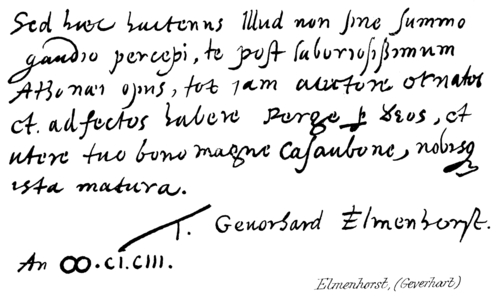 Sed haec hactenus Illud non sine summo
gaudio percepi, te post laboriosissimum
Athenaei opus, tot jam auctore ornatos
et adfectos habere Perge Deos, et
utere tuo bono magne Casaubone, nobisq
ista matura.
T. Geuorhard Elmenhorst.
An ꝏ.CI.CIII.
Elmenhorst, (Geverhart)